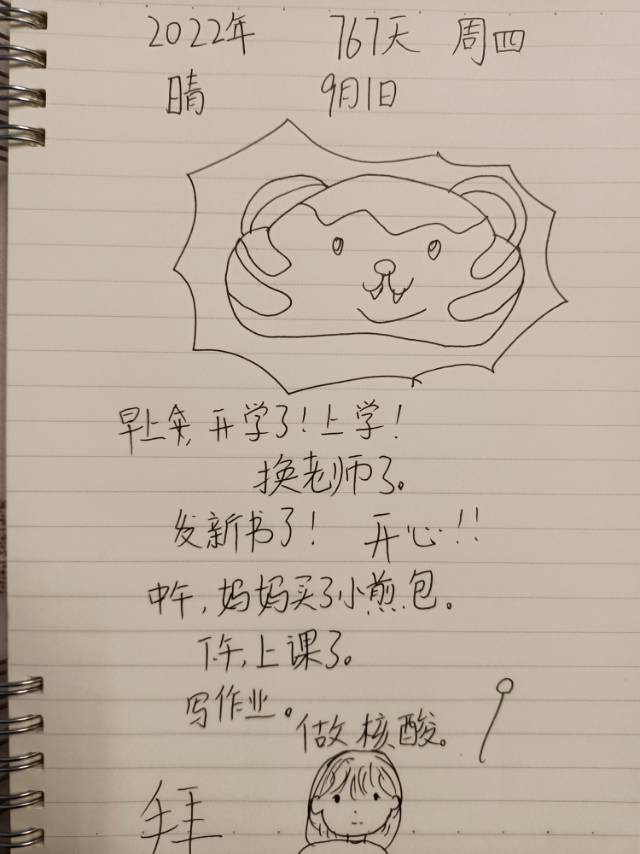 2022年 767天 周四
晴 9月1日
早上, 开学了！上学！
换老师了。
发新书了！ 开心!!
中午,妈妈买了小煎包。
下午,上课了。
写作业。
做核酸。
拜